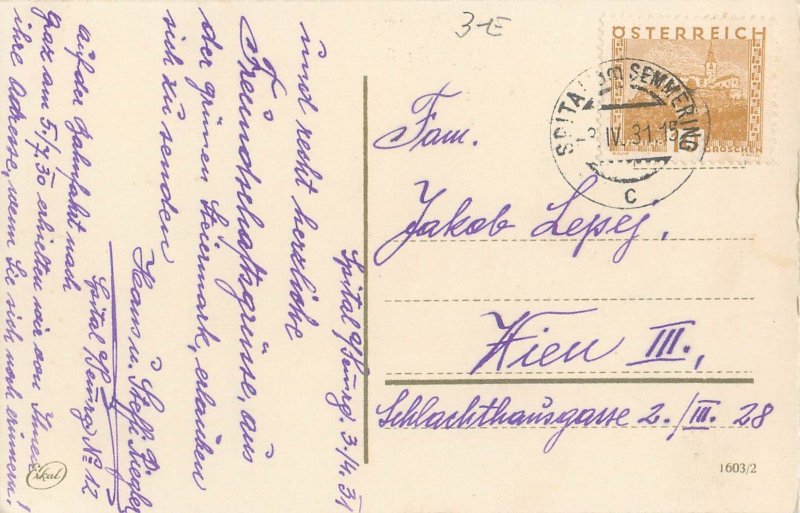 3-E
ÖSTERREICH
GROSCHEN
SPITAL am SEMMERING
-3.IV.31.15
c
Fam.
Jakob Lepej,
Wien III.,
Schlachthausgasse 2./III. 28
1603/2
Spital a/Semrg. 3./4. 31
und recht herzliche
Freundschaftsgrüsse, aus
der grünen Steiermark, erlauben
sich zu senden
Hans u. Steffi Riegler
Spital a/Semrg No 12
auf der Bahnfahrt nach
Graz am 5./7.30 erhielten wir von Ihnen
ihre Adresse, wenn Sie sich noch erinnern!